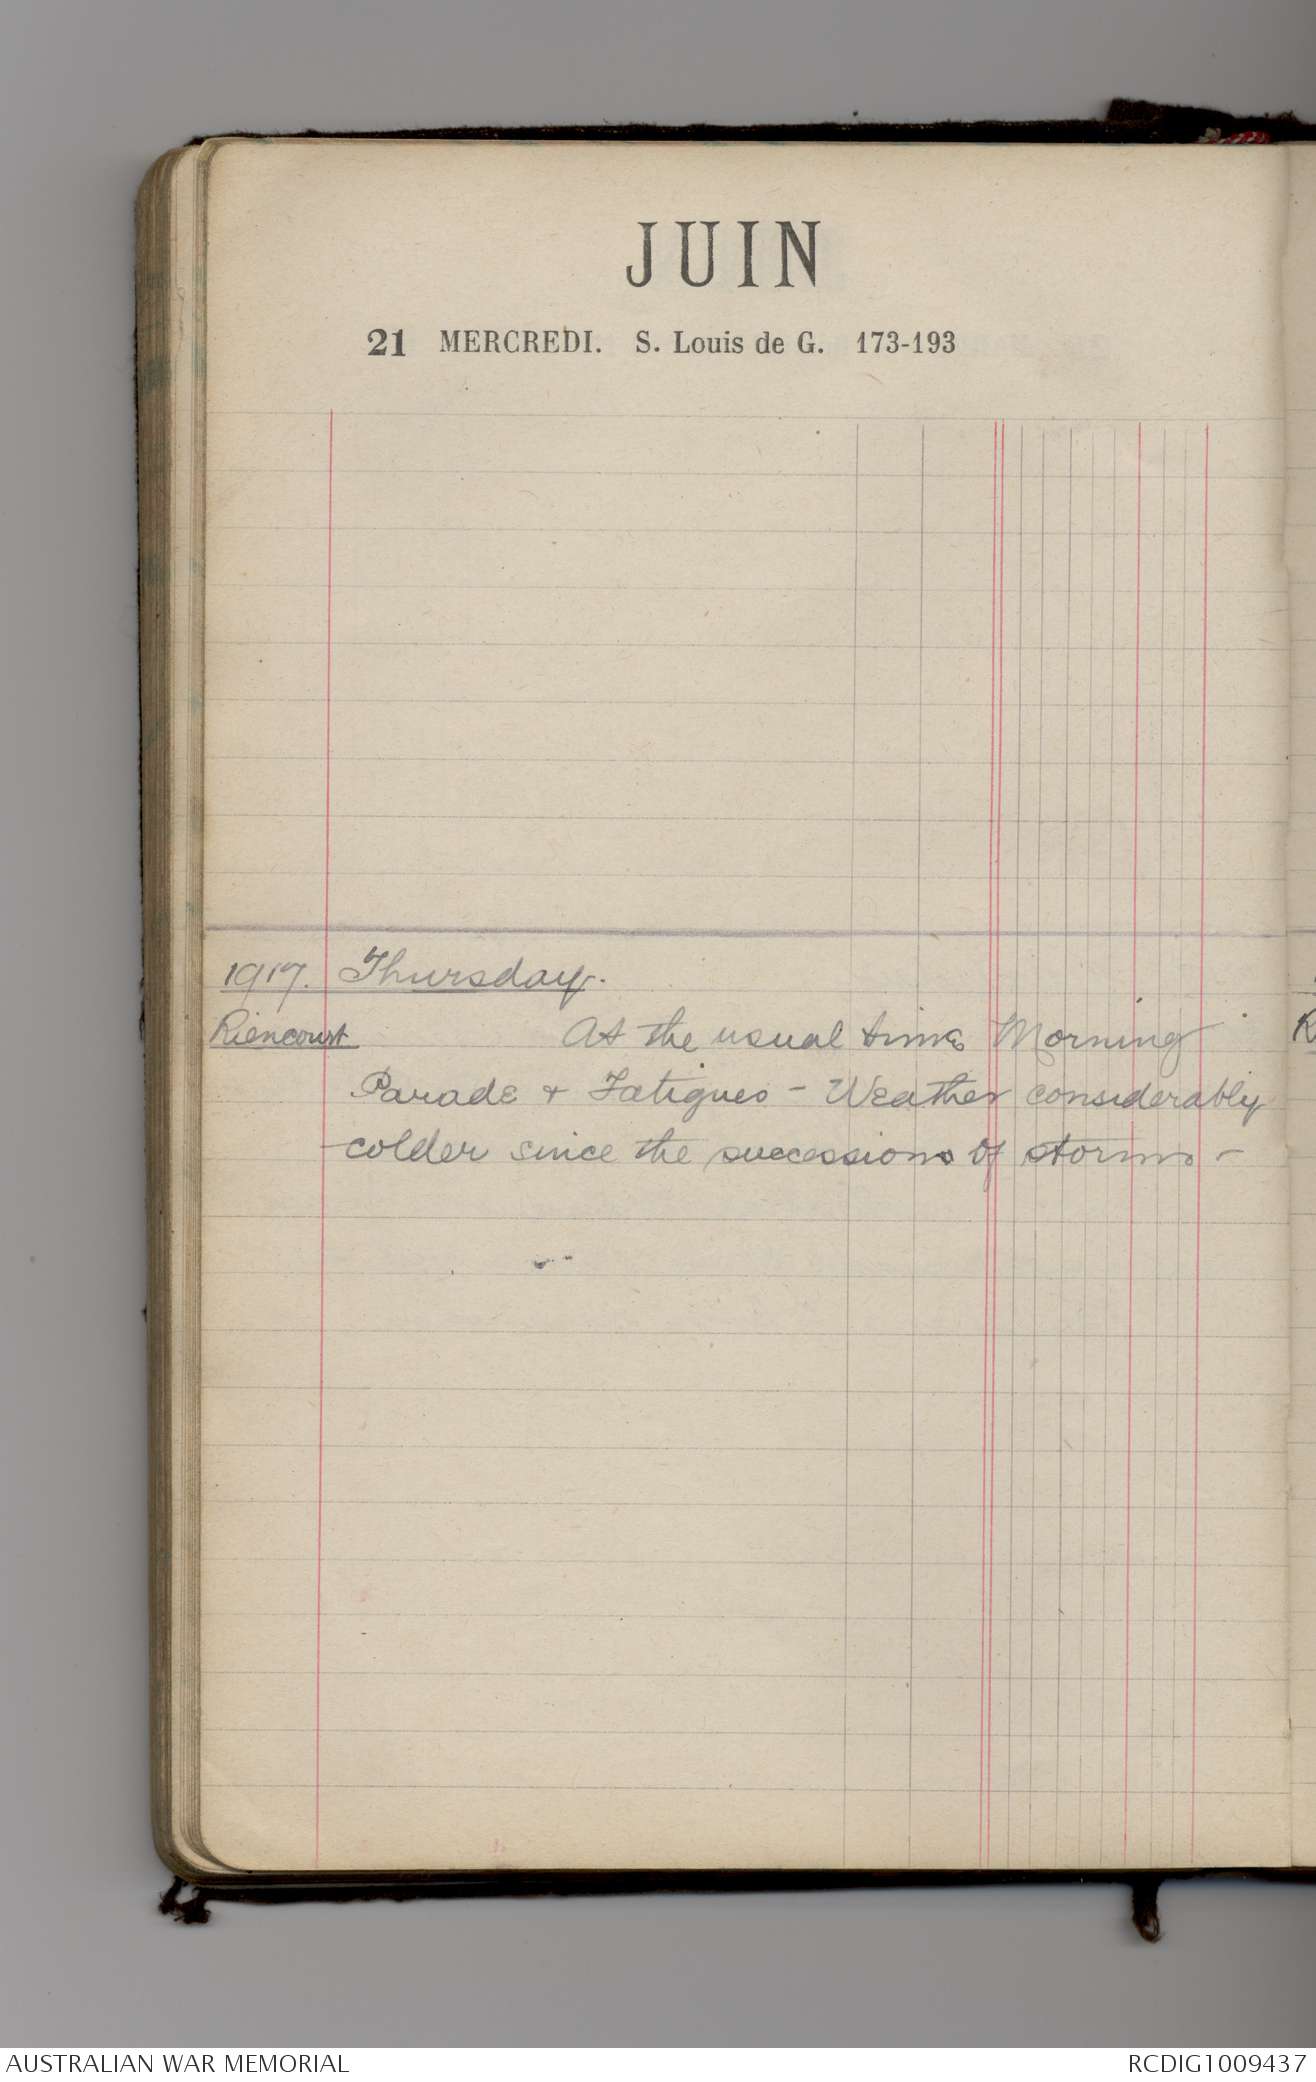 JUIN
21 MERCREDI. S. Louis de G. 173-193
1917. Thursday.
Riencourt At the usual time Morning
Parade + Fatigues - Weather considerably
colder since the successions of storms -
R
AUSTRALIAN WAR MEMORIAL RCDIG1009437